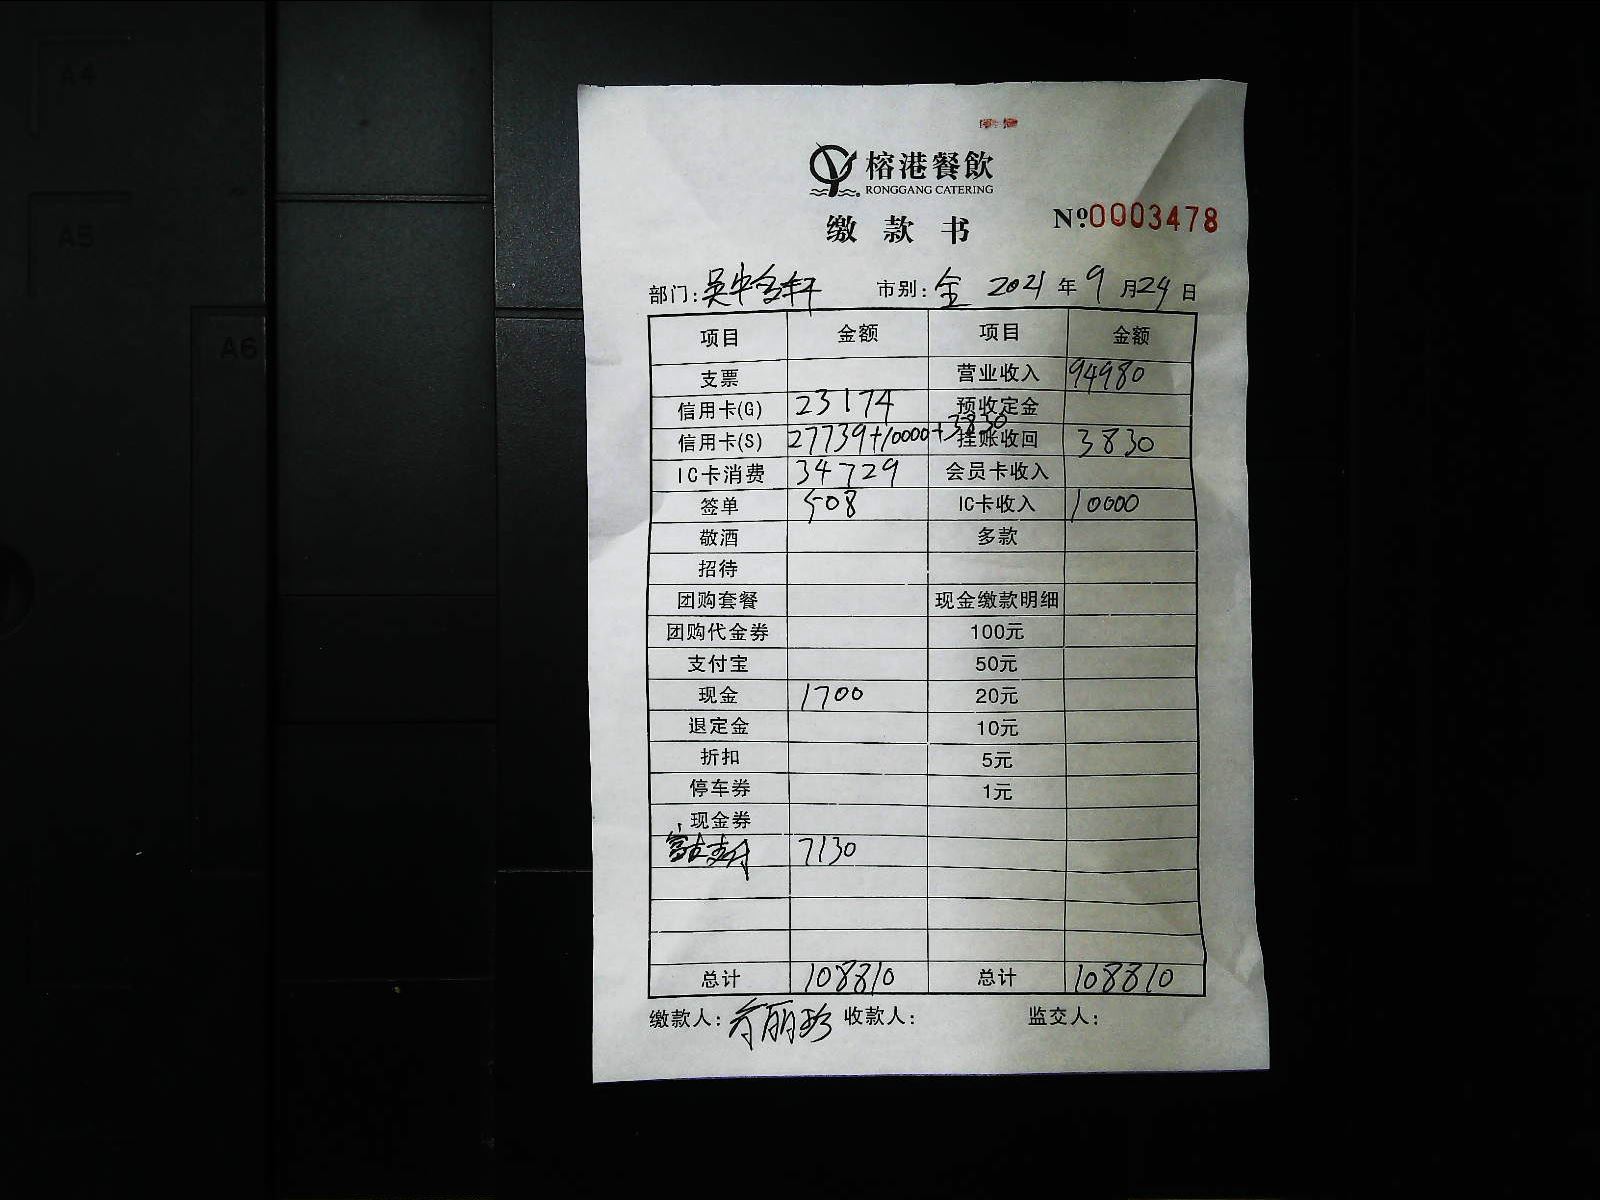 A4
A5
A6
榕港餐飲
RONGGANG CATERING
缴款书 Nº0003478
部门:吴中 轩 市别:全 2021年9月24日
项目 金额 项目 金额
支票 营业收入 94980
信用卡(G) 23174 预收定金
信用卡(S) 27739+10000+3830 挂账收回 3830
IC卡消费 34729 会员卡收入
签单 508 IC卡收入 10000
敬酒 多款
招待
团购套餐 现金缴款明细
团购代金券 100元
支付宝 50元
现金 1700 20元
退定金 10元
折扣 5元
停车券 1元
现金券
支付 7130
总计 108810 总计 108810
缴款人: 丽珍 收款人: 监交人: